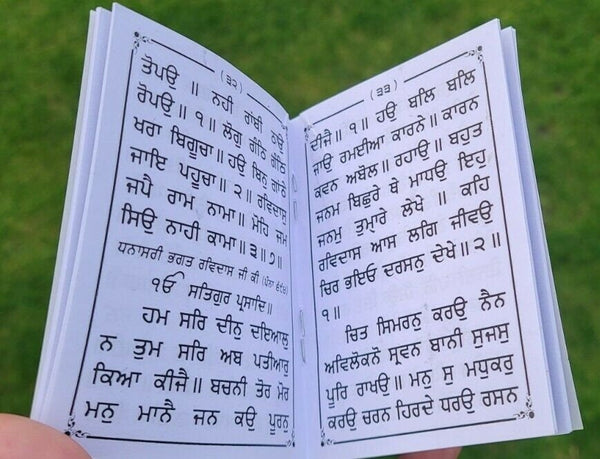 (੩੨)
ਤੋਪਉ ॥ ਨਹੀ ਗੰਢੀ ਠਉ
ਰੋਪਉ ॥ ੧ ॥ ਲੋਗੁ ਗੰਠਿ ਗੰਠਿ
ਖਰਾ ਬਿਗੂਚਾ॥ ਹਉ ਬਿਨੁ ਗਾਂਠੇ
ਜਾਇ ਪਹੂਚਾ॥ ੨॥ ਰਵਿਦਾਸੁ
ਜਪੈ ਰਾਮ ਨਾਮਾ॥ ਮੋਹਿ ਜਮ
ਸਿਉ ਨਾਹੀ ਕਾਮਾ॥੩॥੭॥
ਧਨਾਸਰੀ ਭਗਤ ਰਵਿਦਾਸ ਜੀ ਕੀ (ਪੰਨਾ ੬੯੪)
ੴ ਸਤਿਗੁਰ ਪ੍ਰਸਾਦਿ॥
ਹਮ ਸਰਿ ਦੀਨੁ ਦਇਆਲੁ
ਨ ਤੁਮ ਸਰਿ ਅਬ ਪਤੀਆਰੁ
ਕਿਆ ਕੀਜੈ॥ ਬਚਨੀ ਤੋਰ ਮੋਰ
ਮਨੁ ਮਾਨੈ ਜਨ ਕਉ ਪੂਰਨੁ
(੩੩)
ਦੀਜੈ॥ ੧॥ ਹਉ ਬਲਿ ਬਲਿ
ਜਾਉ ਰਮਈਆ ਕਾਰਨੇ॥ ਕਾਰਨ
ਕਵਨ ਅਬੋਲ॥ ਰਹਾਉ॥ ਬਹੁਤ
ਜਨਮ ਬਿਛੁਰੇ ਥੇ ਮਾਧਉ ਇਹੁ
ਜਨਮੁ ਤੁਮ੍ਹਾਰੇ ਲੇਖੇ ॥ ਕਹਿ
ਰਵਿਦਾਸ ਆਸ ਲਗਿ ਜੀਵਉ
ਚਿਰ ਭਇਓ ਦਰਸਨੁ ਦੇਖੇ॥੨॥
੧॥
ਚਿਤ ਸਿਮਰਨੁ ਕਰਉ ਨੈਨ
ਅਵਿਲੋਕਨੋ ਸ੍ਰਵਨ ਬਾਨੀ ਸੁਜਸੁ
ਪੂਰਿ ਰਾਖਉ॥ ਮਨੁ ਸੁ ਮਧੁਕਰੁ
ਕਰਉ ਚਰਨ ਹਿਰਦੇ ਧਰਉ ਰਸਨ